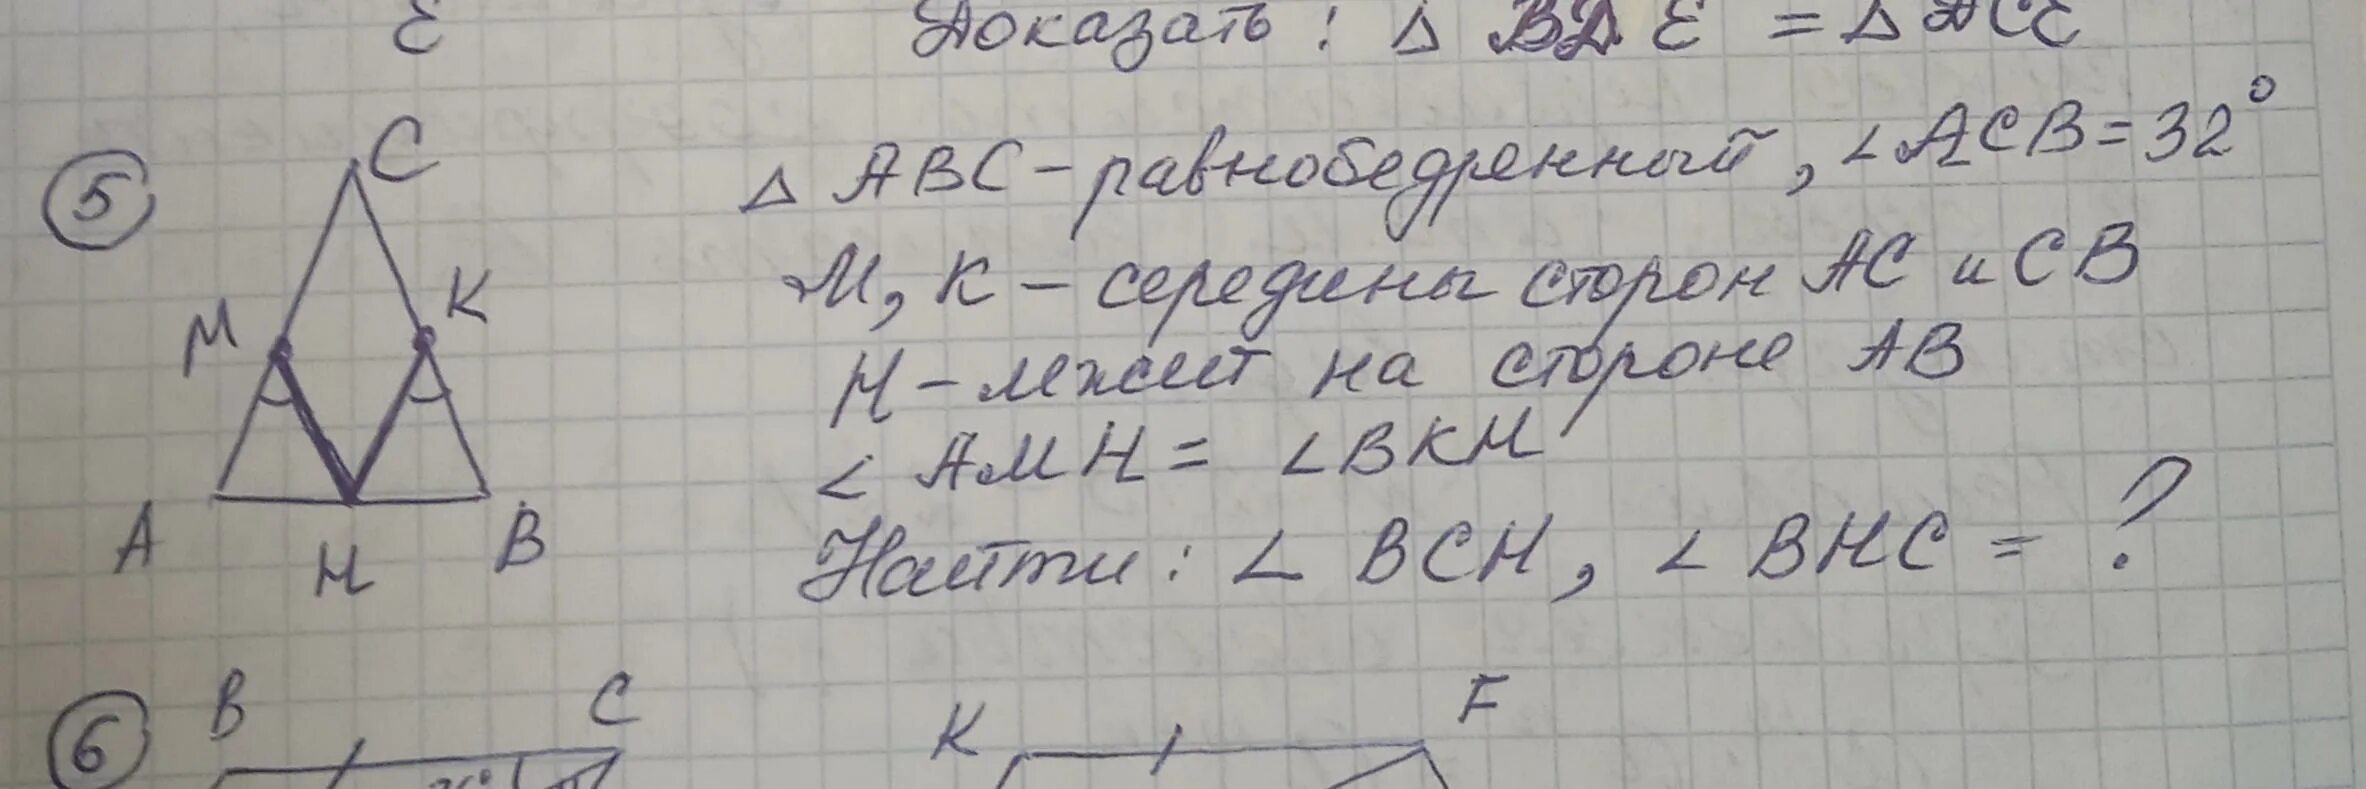 E
Доказать: △ BDE = △ ACE
5
C
△ ABC – равнобедренный, ∠ACB = 32°
K
M
M, K – середины сторон AC и CB
H – лежит на стороне AB
∠ AMH = ∠BKH
A
H
B
Найти: ∠ BCH, ∠ BHC = ?
6
B
C
K
F